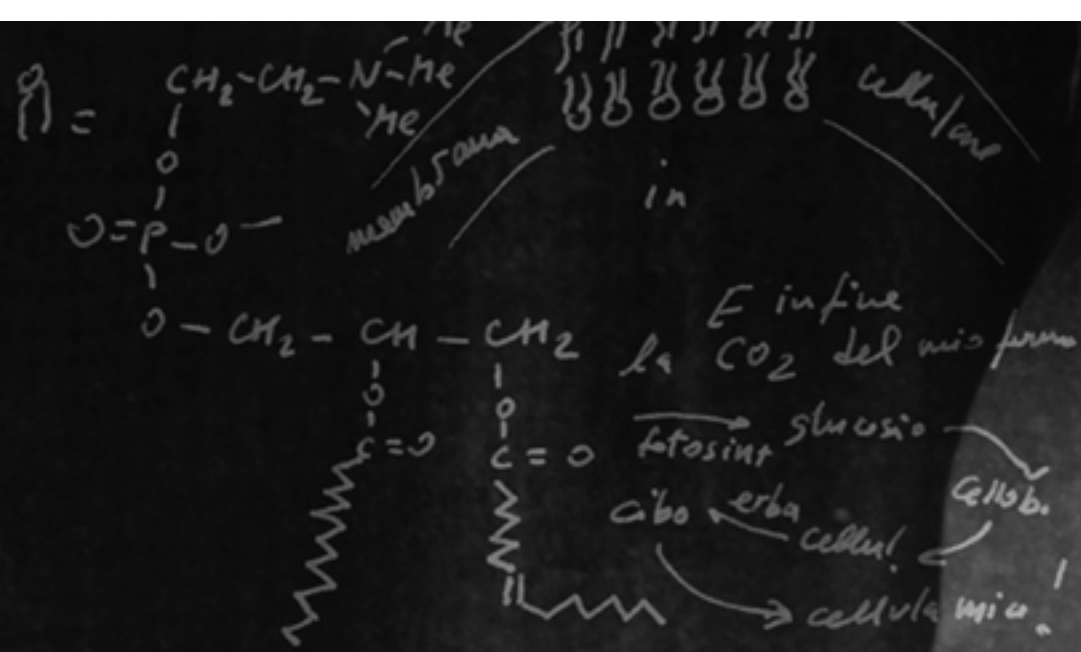 Me
CH₂-CH₂-N-Me
Me
=
O
O=P-O-
O-CH₂-CH-CH₂
O O
C=O C=O
membrana
cellulare
in
E infine
la CO₂ del mio
fotosint glucosio
cellob.
cibo erba cellul!
cellula mia!